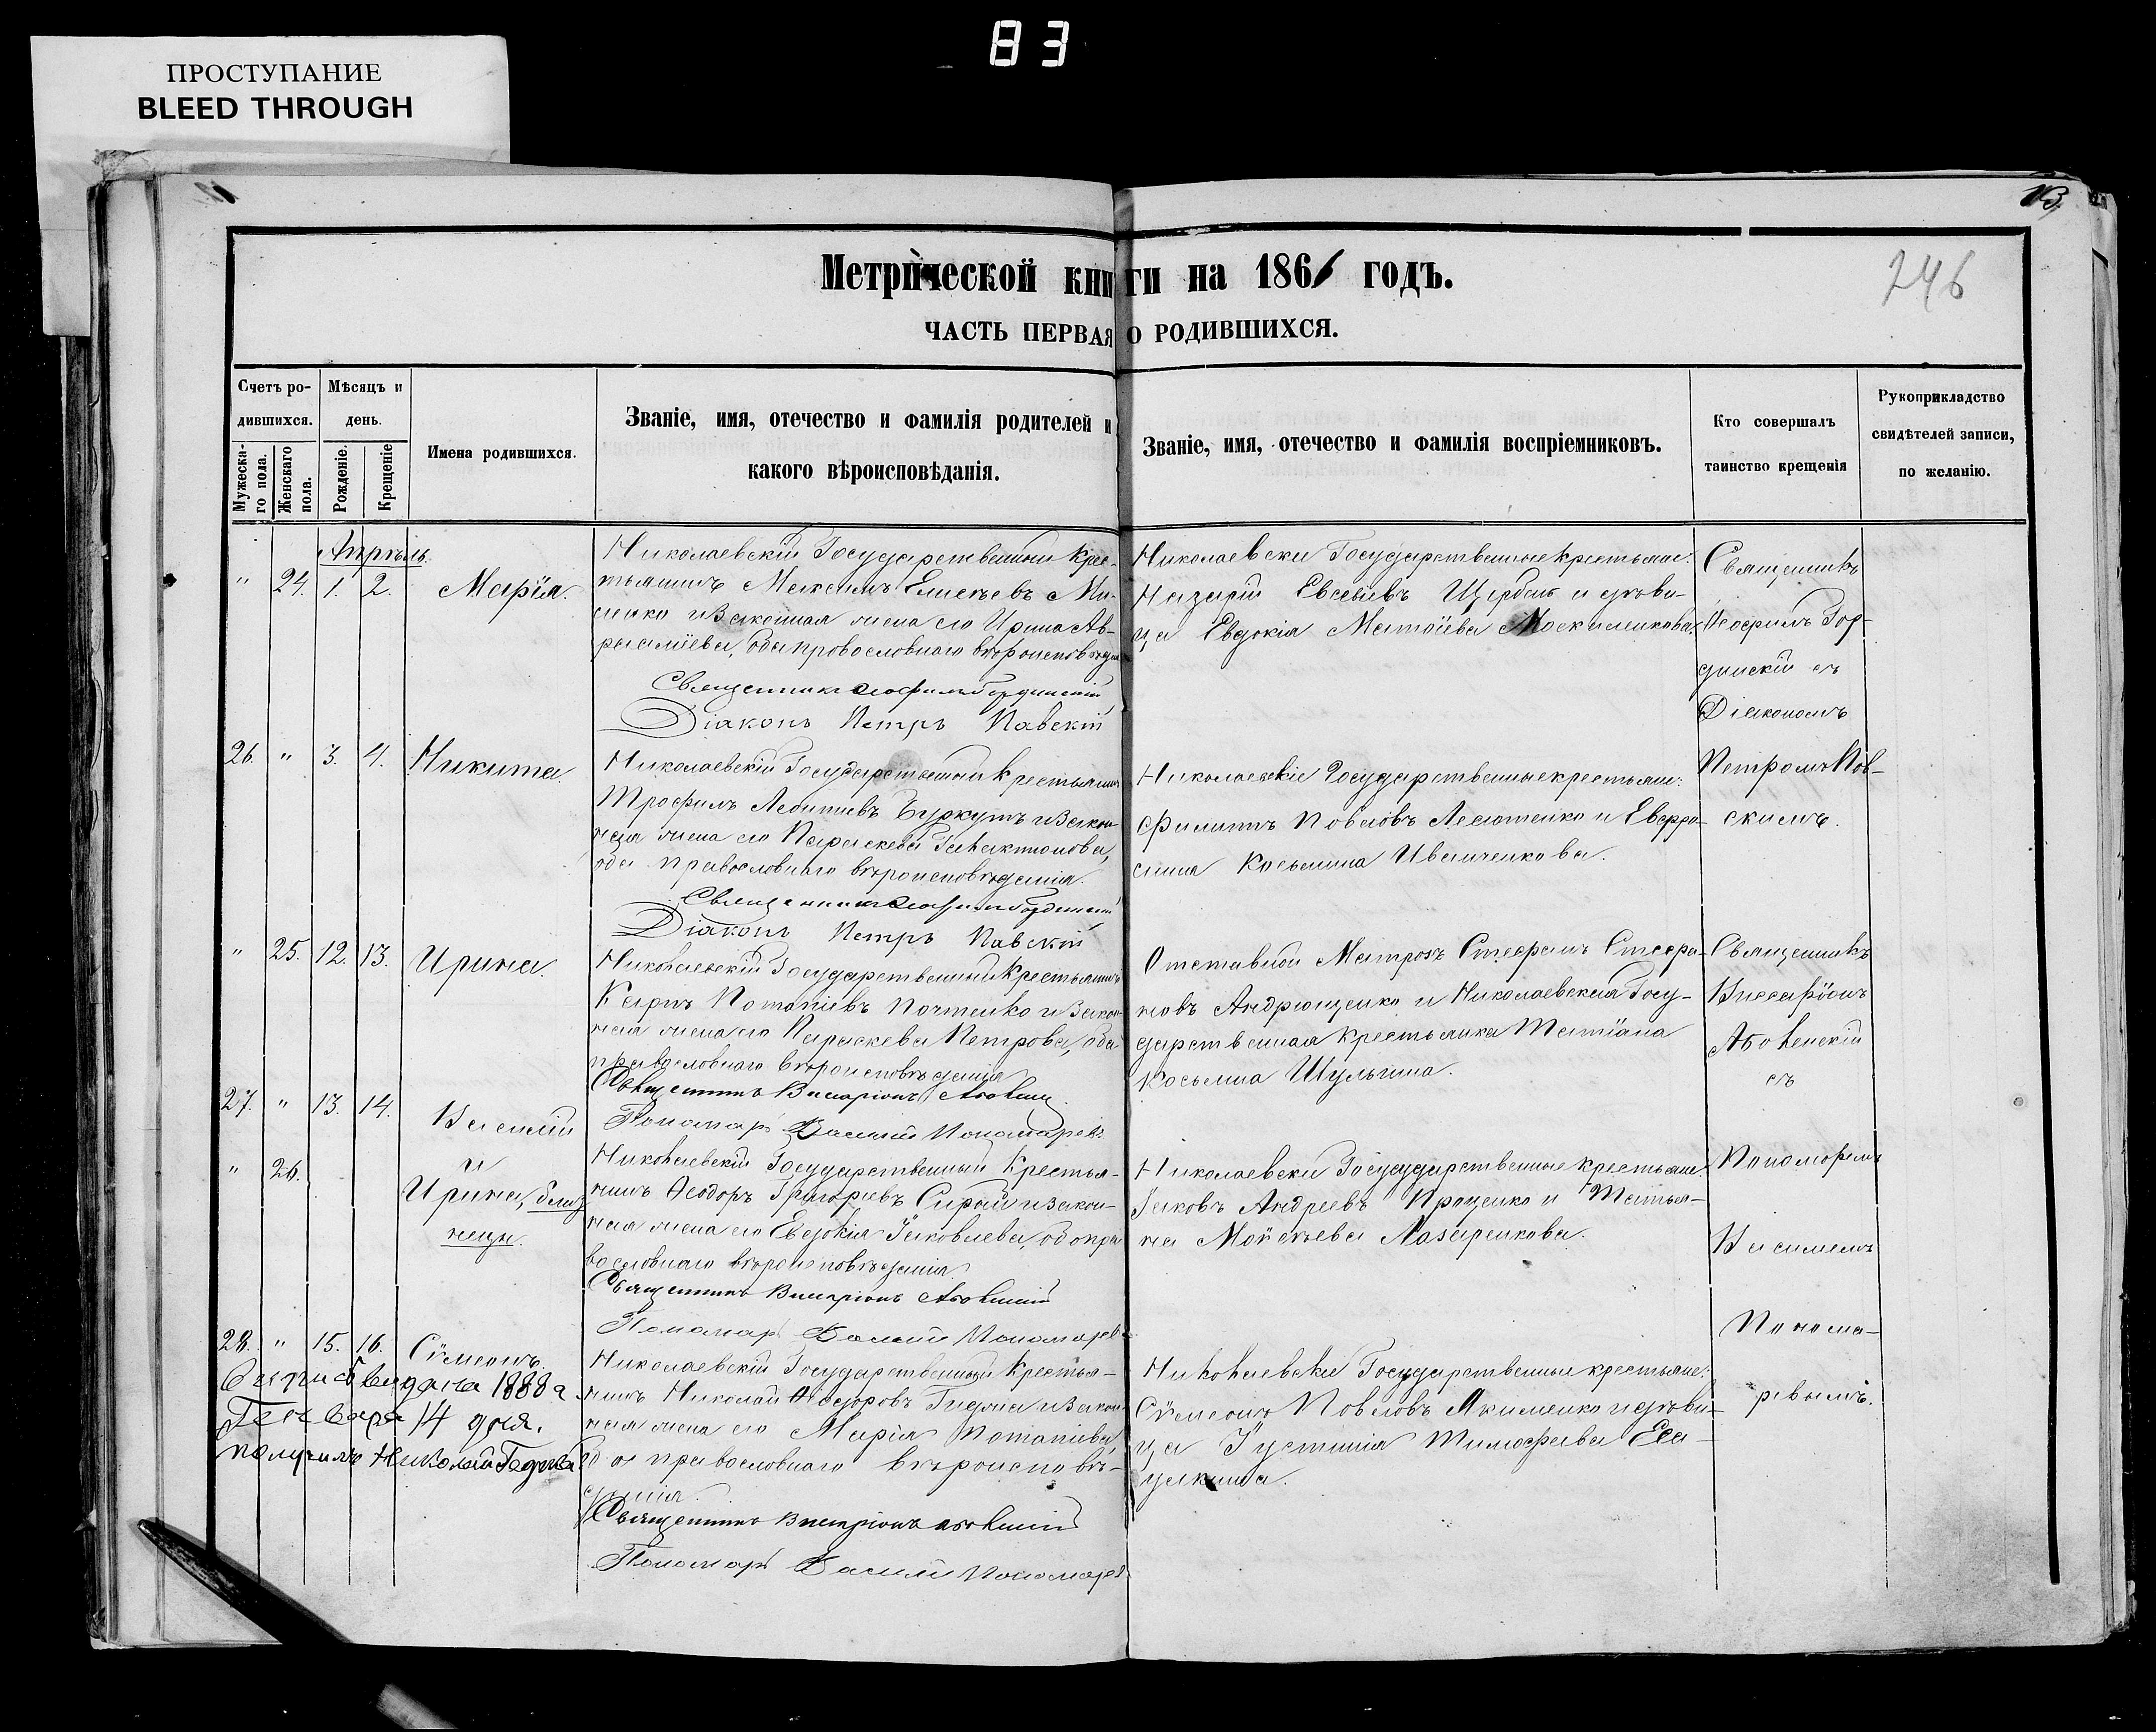 83
ПРОСТУПАНИЕ
BLEED THROUGH
246
Метрической книги на 1861 годъ.
ЧАСТЬ ПЕРВАЯ О РОДИВШИХСЯ.
Счетъ ро-
дившихся.
Мужеска-
го пола.
Женскаго
пола.
Мѣсяцъ и
день.
Рожденіе.
Крещеніе
Имена родившихся.
Званіе, имя, отечество и фамилія родителей и
какого вѣроисповѣданія.
Званіе, имя, отечество и фамилія воспріемниковъ.
Кто совершалъ
таинство крещенія
Рукоприкладство
свидѣтелей записи,
по желанію.
Апрѣль.
" 24. 1. 2. Марія.
Николаевскій Государственный Крес-
тьянинъ Максимъ Елисѣевъ
и Законная жена его Ирина Ав-
оба православнаго
Священникъ
Діаконъ Петръ Павскій
Николаевски Государственные крестьяне:
Назарій Евсевіевъ Щербакъ и дѣви-
ца Евдокія
Священникъ
съ
Діакономъ
Петромъ Пав-
скимъ.
26. " 3. 4. Никита.
Николаевскій Государственный Крестьянинъ
Трофимъ Леонтіевъ Буркутъ и Закон-
ная жена его Параскева
оба православнаго вѣроисповѣданія.
Священникъ
Діаконъ Петръ Павскій
Николаевскіе Государственные крестьяне:
Филиппъ Павловъ и Евфро-
сина Косьмина Иванченкова.
" 25. 12. 13. Ирина.
Николаевскій Государственный Крестьянинъ
Карпъ Потапіевъ Почтенко и Закон-
ная жена его Параскева Петрова, оба
православнаго вѣроисповѣданія
Священникъ Виссаріонъ
Пономарь Василій Пономаревъ
Отставной Матрозъ Стефанъ Стефа-
новъ Андрющенко и Николаевская Госу-
дарственная крестьянка Татіана
Косьмина Шульгина.
Священникъ
Виссаріонъ
съ
Пономаремъ
Василіемъ
Понома-
ревымъ.
27. " 13. 14. Василій
" 26. и
Ирина, близ
нецы.
Николаевскій Государственный Крестья-
нинъ Ѳеодоръ Григоріевъ Сирый и Закон-
ная жена его Евдокія Іаковлева, оба пра
вославнаго вѣроисповѣданія
Священникъ Виссаріонъ
Пономарь Василій Пономаревъ
Николаевски Государственные крестьяне:
Іаковъ Андреевъ Проценко и Татья-
на Моисѣева Лазаренкова.
28. " 15. 16. Сѵмеонъ.
выдана 1888 г
Генваря 14 дня.
получилъ Николай
Николаевскій Государственный Крестья-
нинъ Николай Ѳеодоровъ и Закон-
ная жена его Марія Потапіева,
оба православнаго вѣроисповѣ-
данія.
Священникъ Виссаріонъ
Пономарь Василій Пономаревъ
Николаевски Государственныя крестьяне:
Сѵмеонъ Павловъ Якименко и дѣви-
ца Іустинія Тимофеева Еса-
улкина.